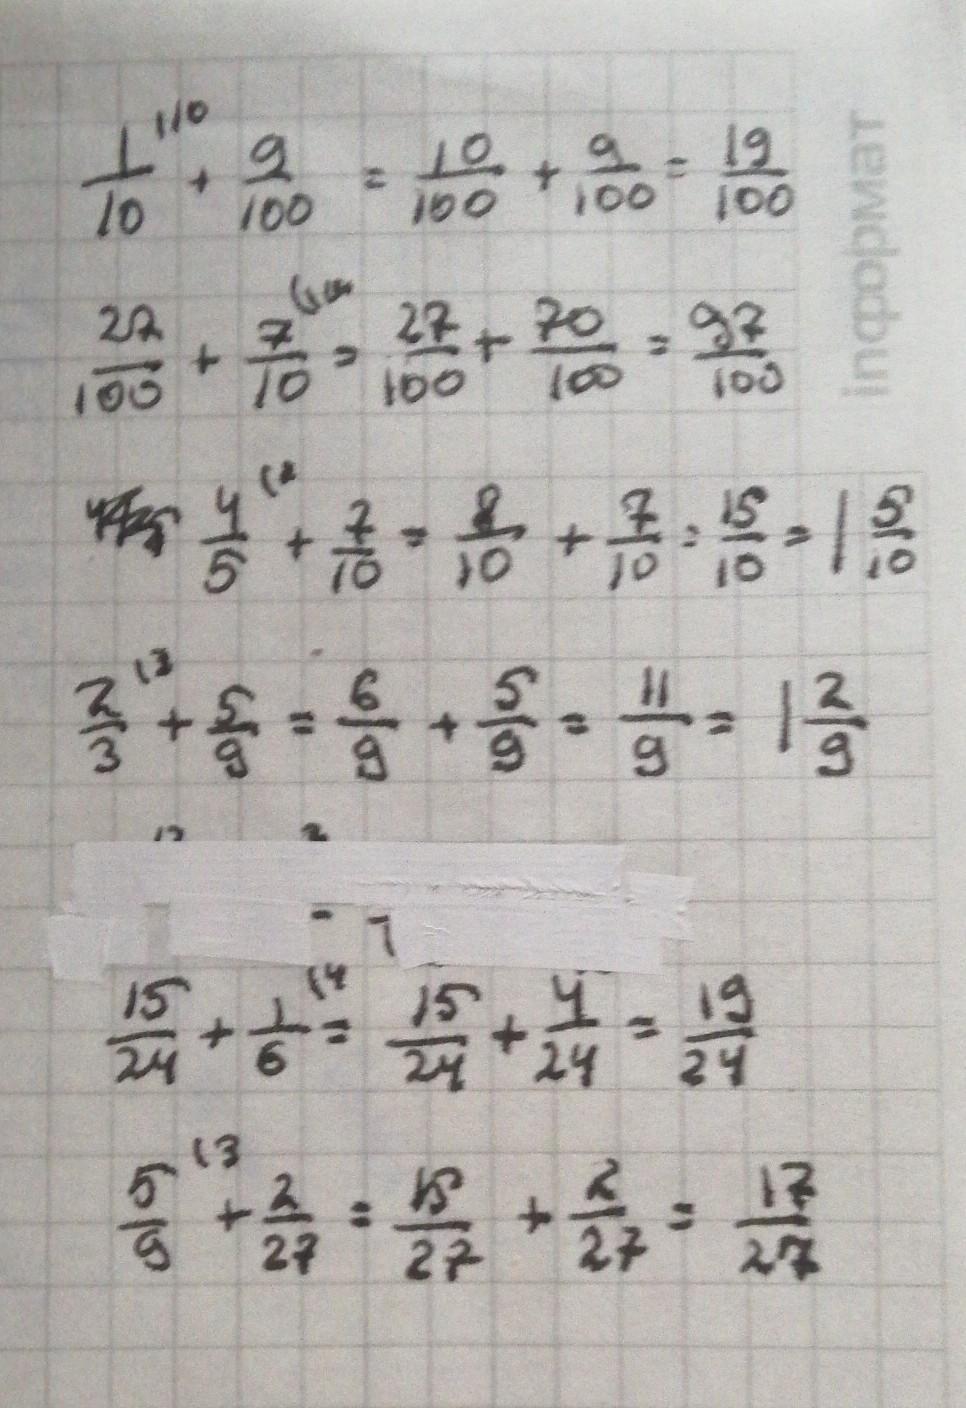 1/10 + 9/100 = 10/100 + 9/100 = 19/100
27/100 + 7/10 = 27/100 + 70/100 = 97/100
4/5 (2 + 7/10 = 8/10 + 7/10 = 15/10 = 1 5/10
2/3 (3 + 5/9 = 6/9 + 5/9 = 11/9 = 1 2/9
15/24 + 1/6 (4 = 15/24 + 4/24 = 19/24
5/9 (3 + 2/27 = 15/27 + 2/27 = 17/27
inформат